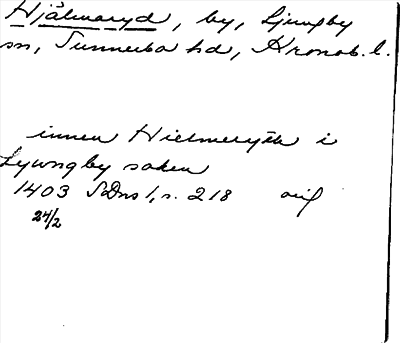 Hjälmaryd, by, Ljungby
sn, Sunnerbo hd, Kronob. l.
innen Hielmerydh i
Lywngby soken
1403 SDns 1, s. 218 orig
24/2